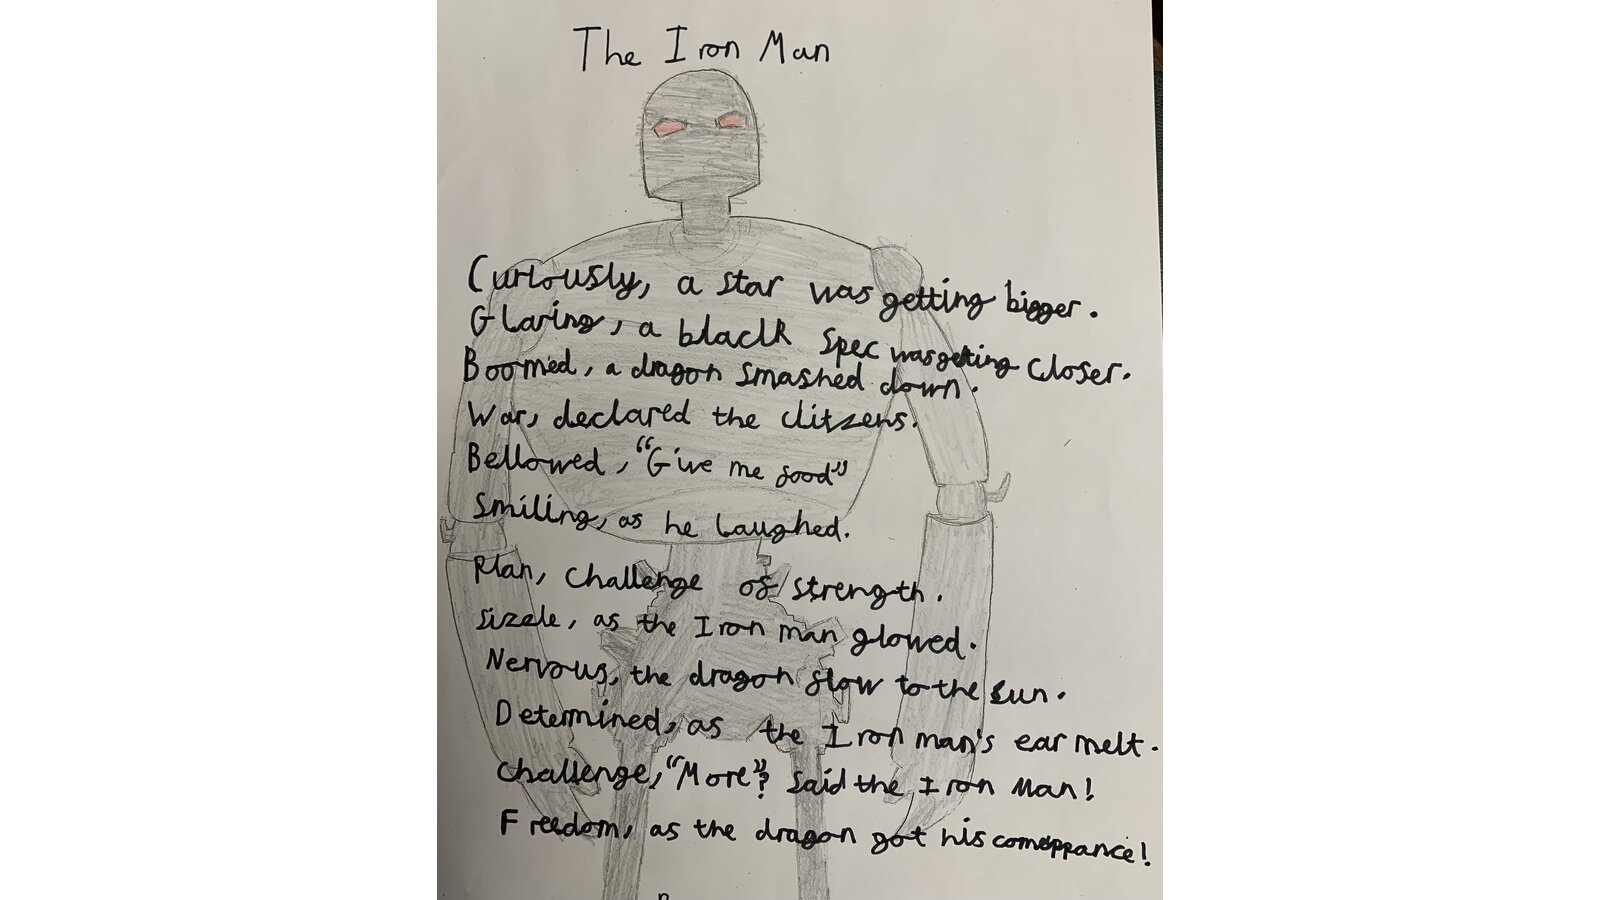 The Iron Man
Curiously, a star was getting bigger.
Glaring, a black spec was getting closer.
Boomed, a dragon smashed down.
War, declared the citizens.
Bellowed, "Give me food"
Smiling, as he laughed.
Plan, challenge of strength.
Sizzle, as the Iron man glowed.
Nervous, the dragon flow to the sun.
Determined, as the Iron man's ear melt.
Challenge, "More"? said the Iron Man!
Freedom, as the dragon got his comeppance!